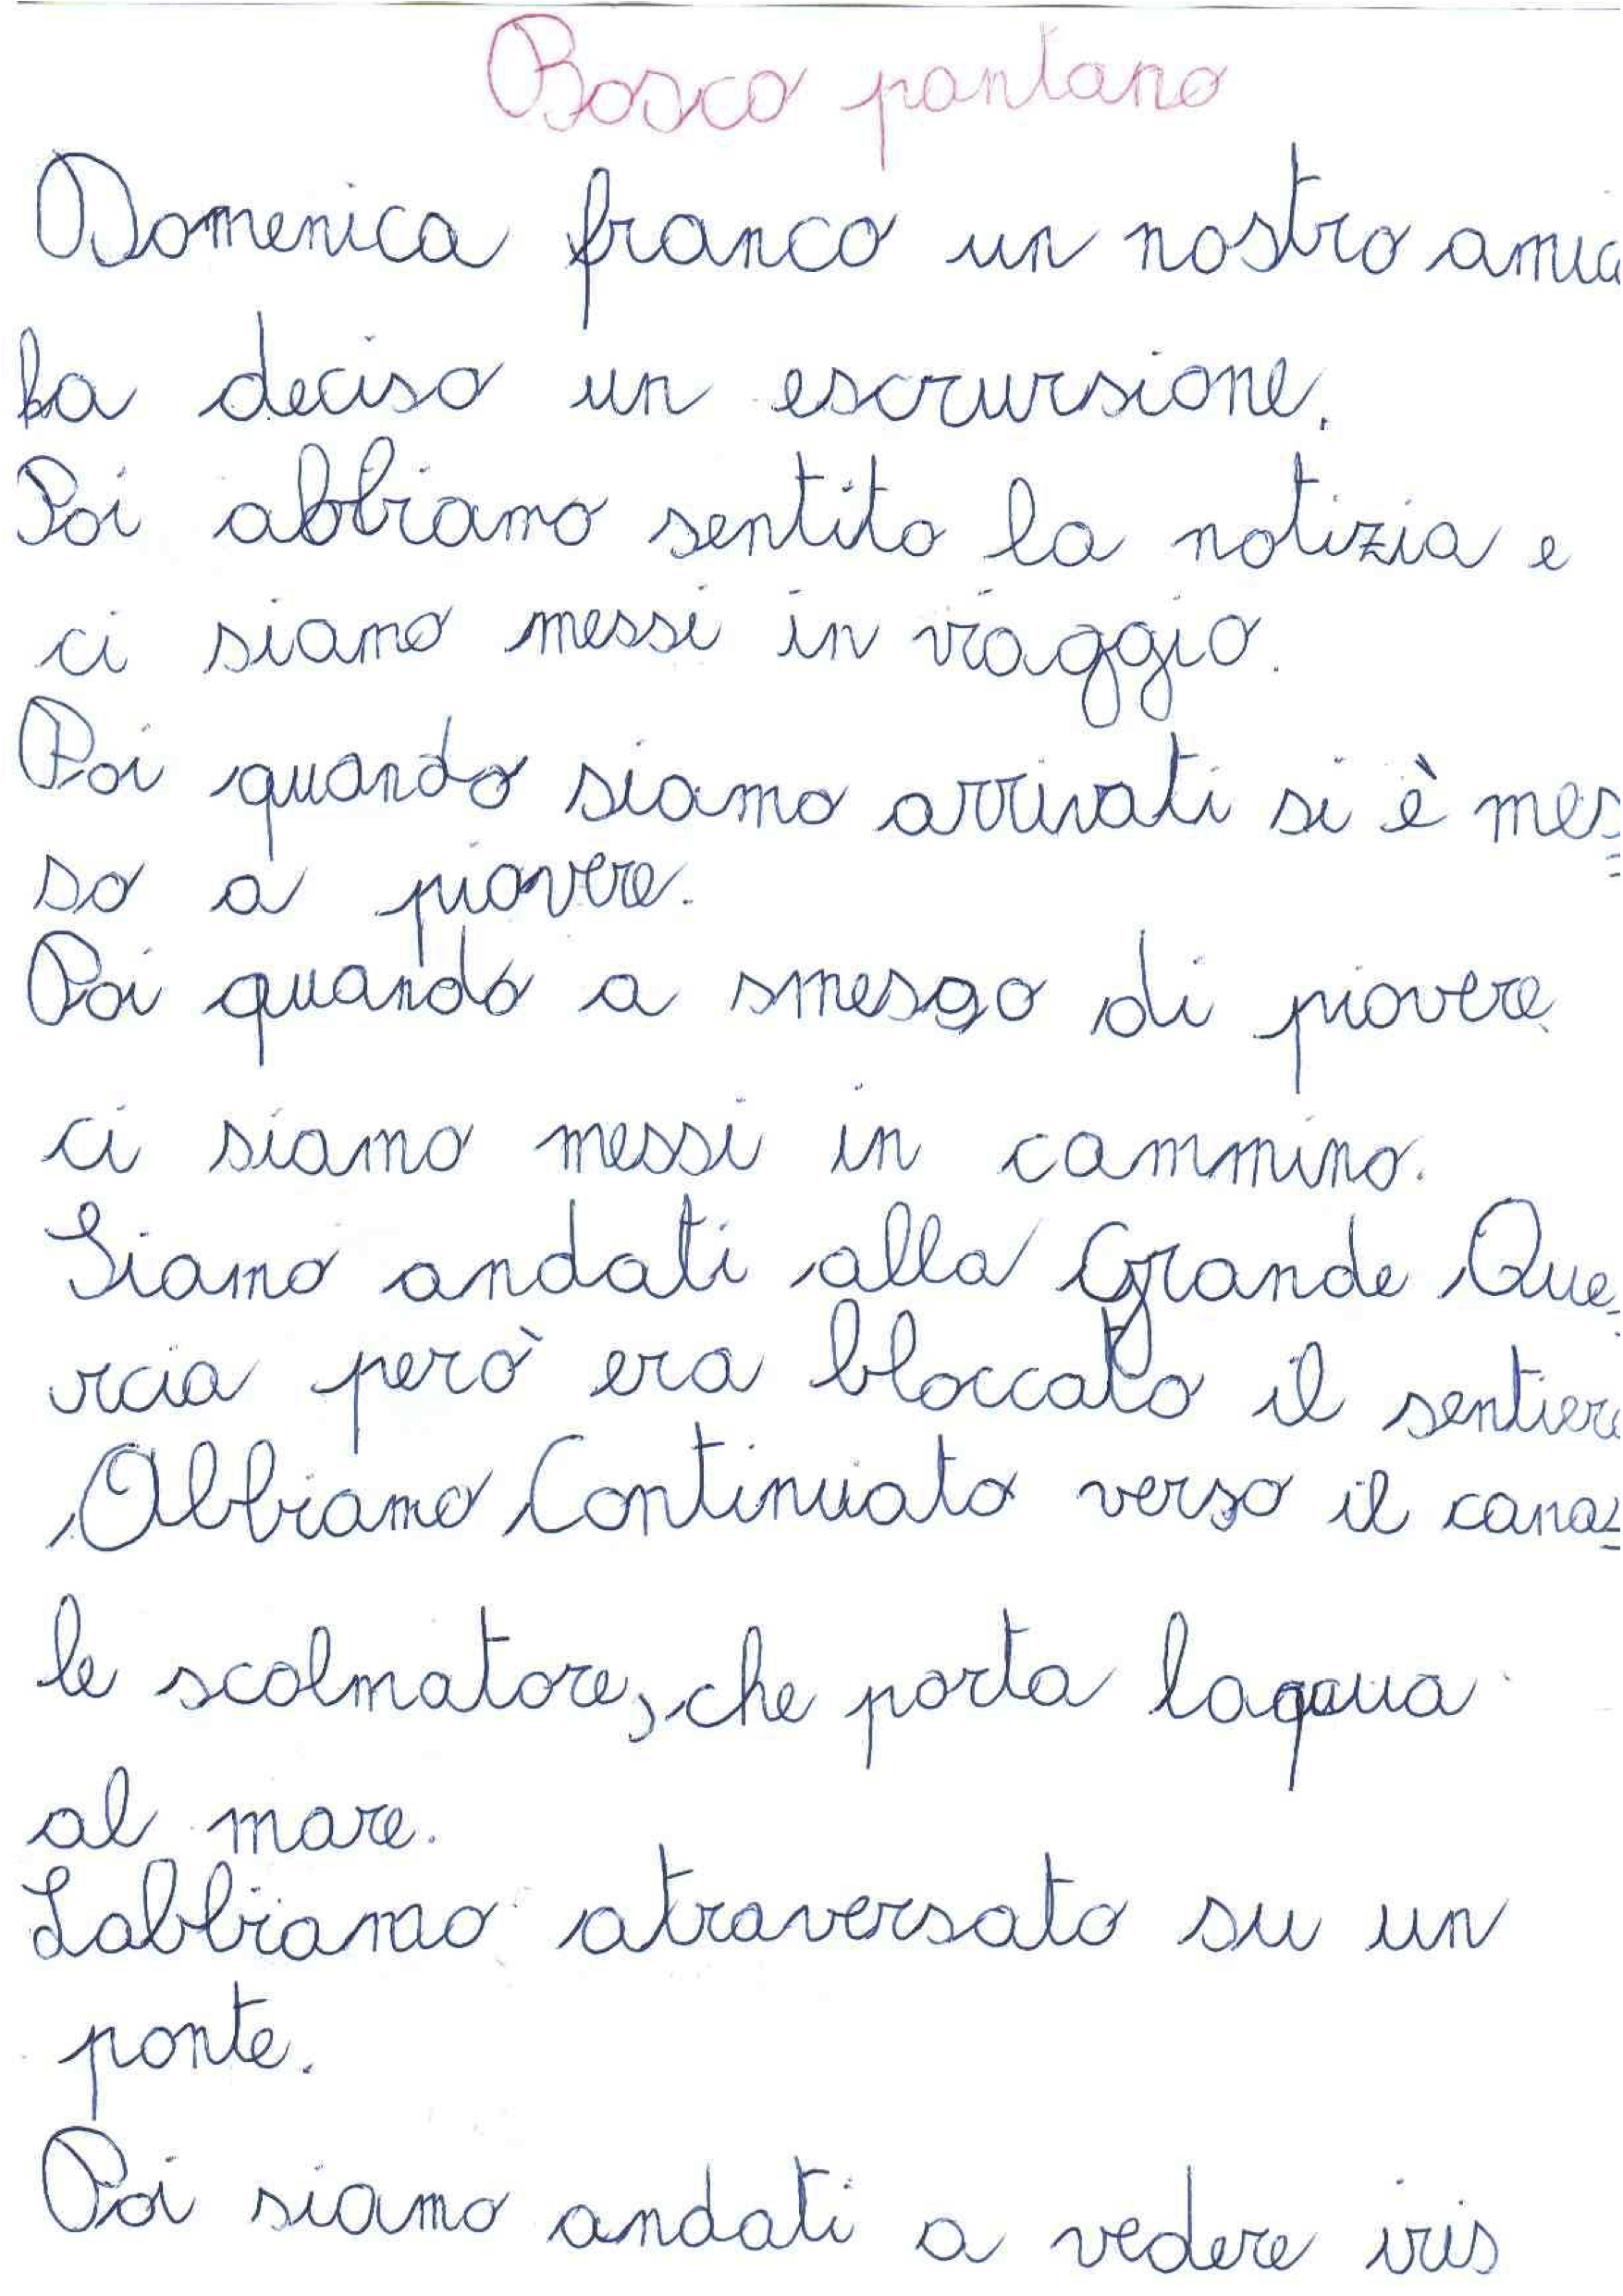 Bosco pantano
Domenica franco un nostro amico
ha deciso un escrursione.
Poi abbiamo sentito la notizia e
ci siamo messi in viaggio.
Poi quando siamo arrivati si è mes=
so a piovere.
Poi quando a smesso di piovere
ci siamo messi in cammino.
Siamo andati alla Grande Que=
rcia però era bloccato il sentiero
Abbiamo Continuato verso il cana=
le scolmatore, che porta laqua
al mare.
Labbiamo atraversato su un
ponte.
Poi siamo andati a vedere iris